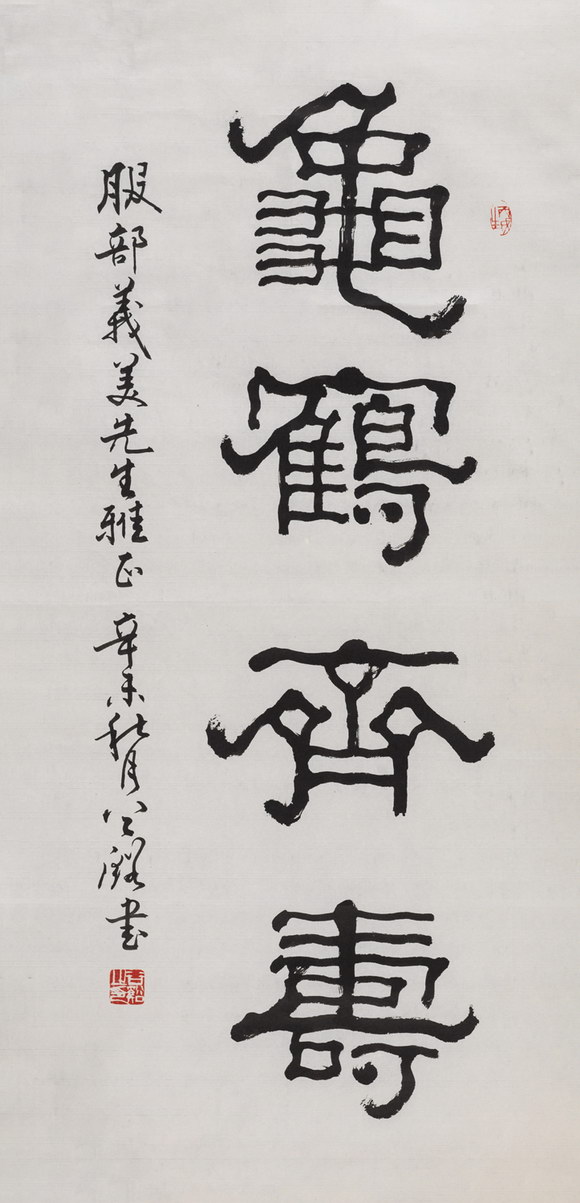 龜鶴齊壽
服部義美先生雅正 辛未秋月 公 書